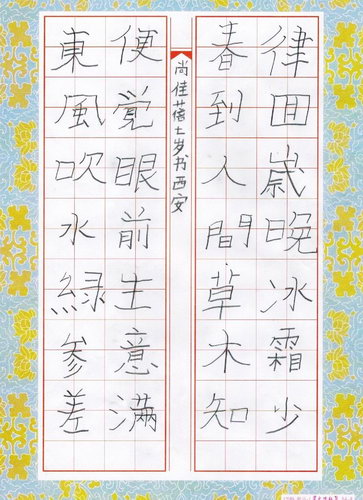 律回歲晚冰霜少
春到人間草木知
便覺眼前生意滿
東風吹水綠參差
尚佳蓓七岁书西安